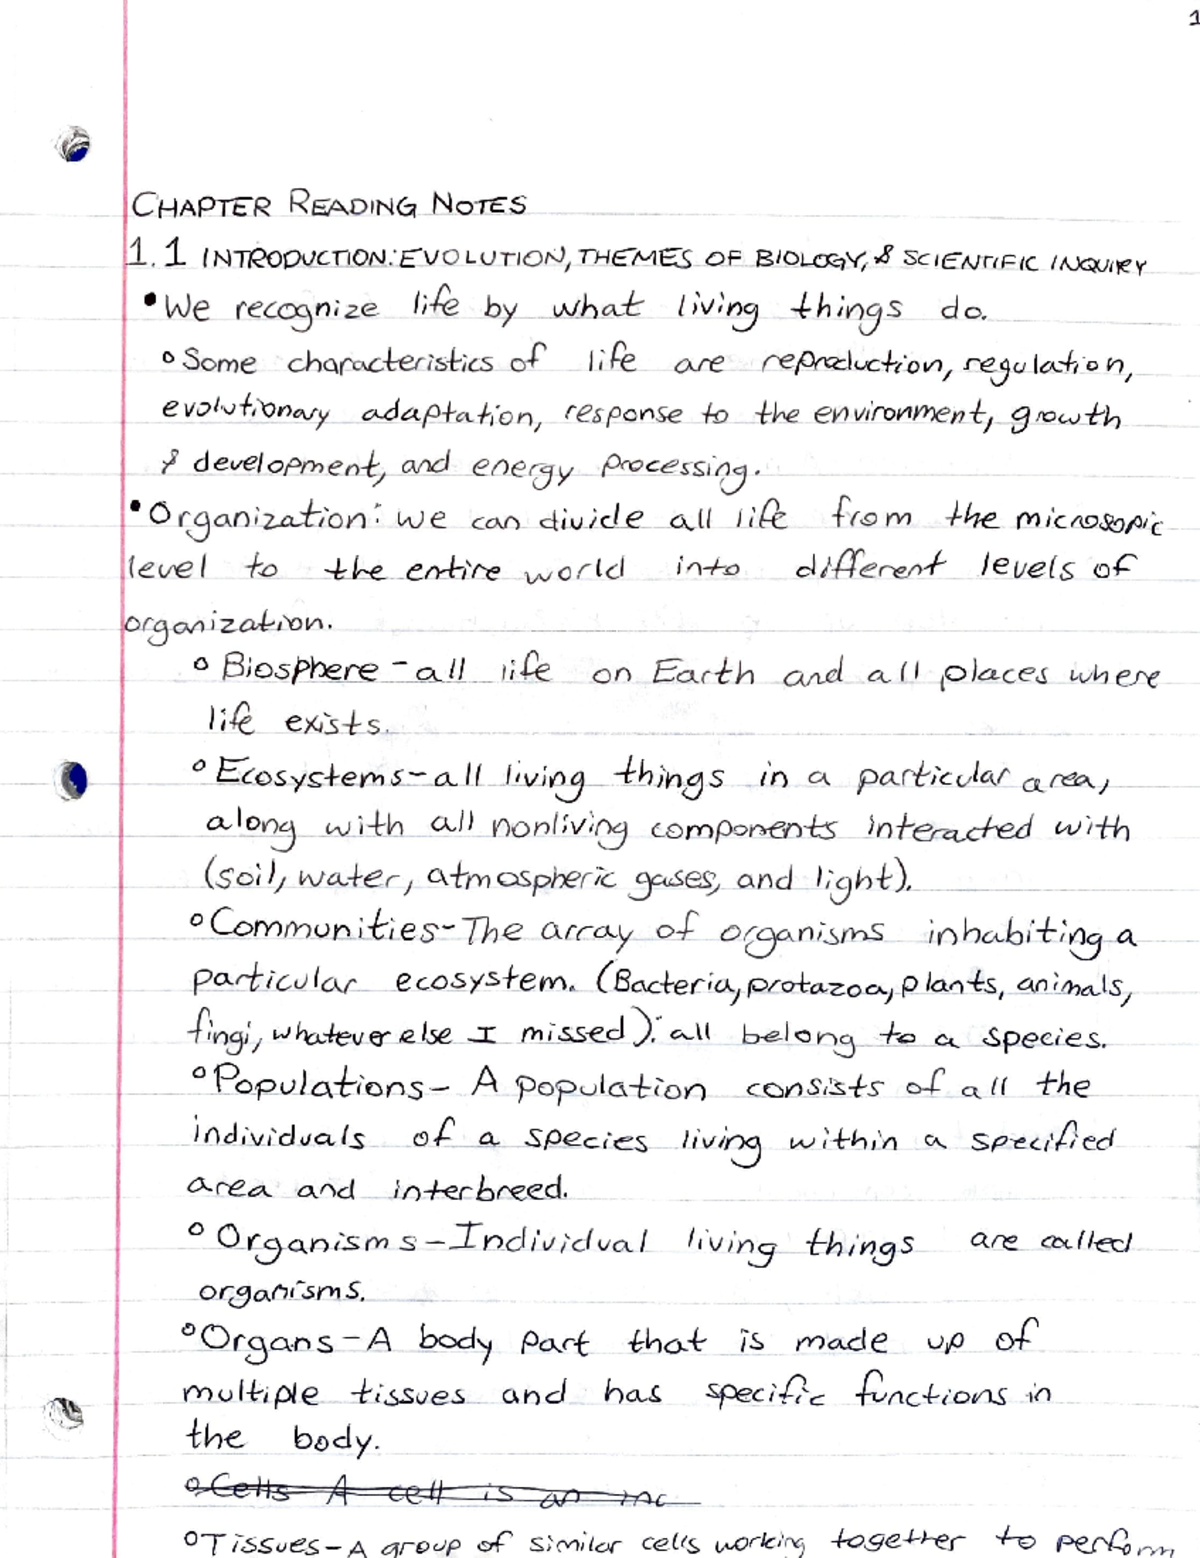 1
CHAPTER READING NOTES
1.1 INTRODUCTION: EVOLUTION, THEMES OF BIOLOGY, & SCIENTIFIC INQUIRY
• We recognize life by what living things do.
o Some characteristics of life are reproduction, regulation,
evolutionary adaptation, response to the environment, growth
& development, and energy processing.
• Organization: we can divide all life from the microsopic
level to the entire world into different levels of
organization.
o Biosphere - all life on Earth and all places where
life exists.
o Ecosystems - all living things in a particular area,
along with all nonliving components interacted with
(soil, water, atmospheric gases, and light).
o Communities - The array of organisms inhabiting a
particular ecosystem. (Bacteria, protazoa, plants, animals,
fingi, whatever else I missed): all belong to a species.
o Populations - A population consists of all the
individuals of a species living within a specified
area and interbreed.
o Organisms - Individual living things are called
organisms.
o Organs - A body part that is made up of
multiple tissues and has specific functions in
the body.
o Cells A cell is an inc
o Tissues - A group of similar cells working together to perform